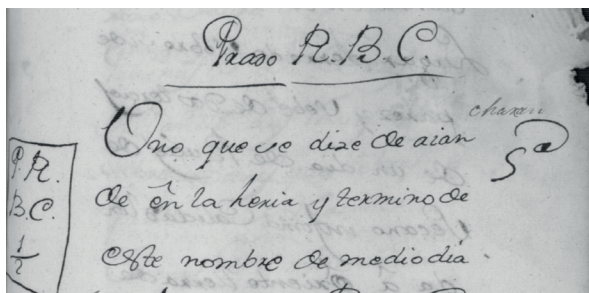 Prado R.B.C
charan
Uno que se dize de aian
S.ª
P.R.
B.C.
1/2
de ên la heria y termino de
este nombre de mediodia